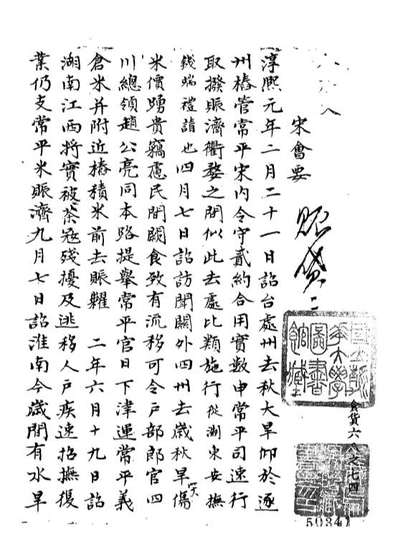 宋會要
賑貸 二
食貨六八之七四
淳熙元年二月二十一日詔台處州去秋大旱仰於逐
州樁管常平宋內令守貳約合用實數申常平司速行
取撥賑濟衢婺之間似此去處比類施行從湖東安撫
錢端禮請也四月七日詔訪聞關外四州去歲秋旱傷
米價踴貴竊慮民間闕食致有流移可令戶部郎官四
川總領趙公亮同本路提舉常平官日下津運常平義
倉米并附近樁積米前去賑糶 二年六月十九日詔
湖南江西將實被茶寇殘擾及逃移人戶疾速招撫復
業仍支常平米賑濟九月七日詔淮南今歲間有水旱